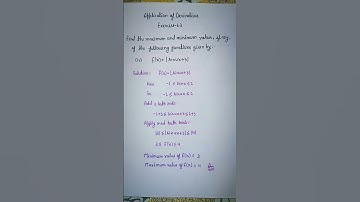 Application of Derivatives
Exercise-6.3
Find the maximum and minimum values, if any,
of the following functions given by:-
f(x) = |sin4x+3|
Solution:- f(x) = |sin4x+3|
-1 ≤ sin4x ≤ 1
Add 3 both side
-1+3 ≤ sin4x+3 ≤ 1+3
Apply mod both side
|2| ≤ |sin4x+3| ≤ |4|
2 ≤ f(x) ≤ 4
Minimum value of f(x) = 2
Maximum value of f(x) = 4